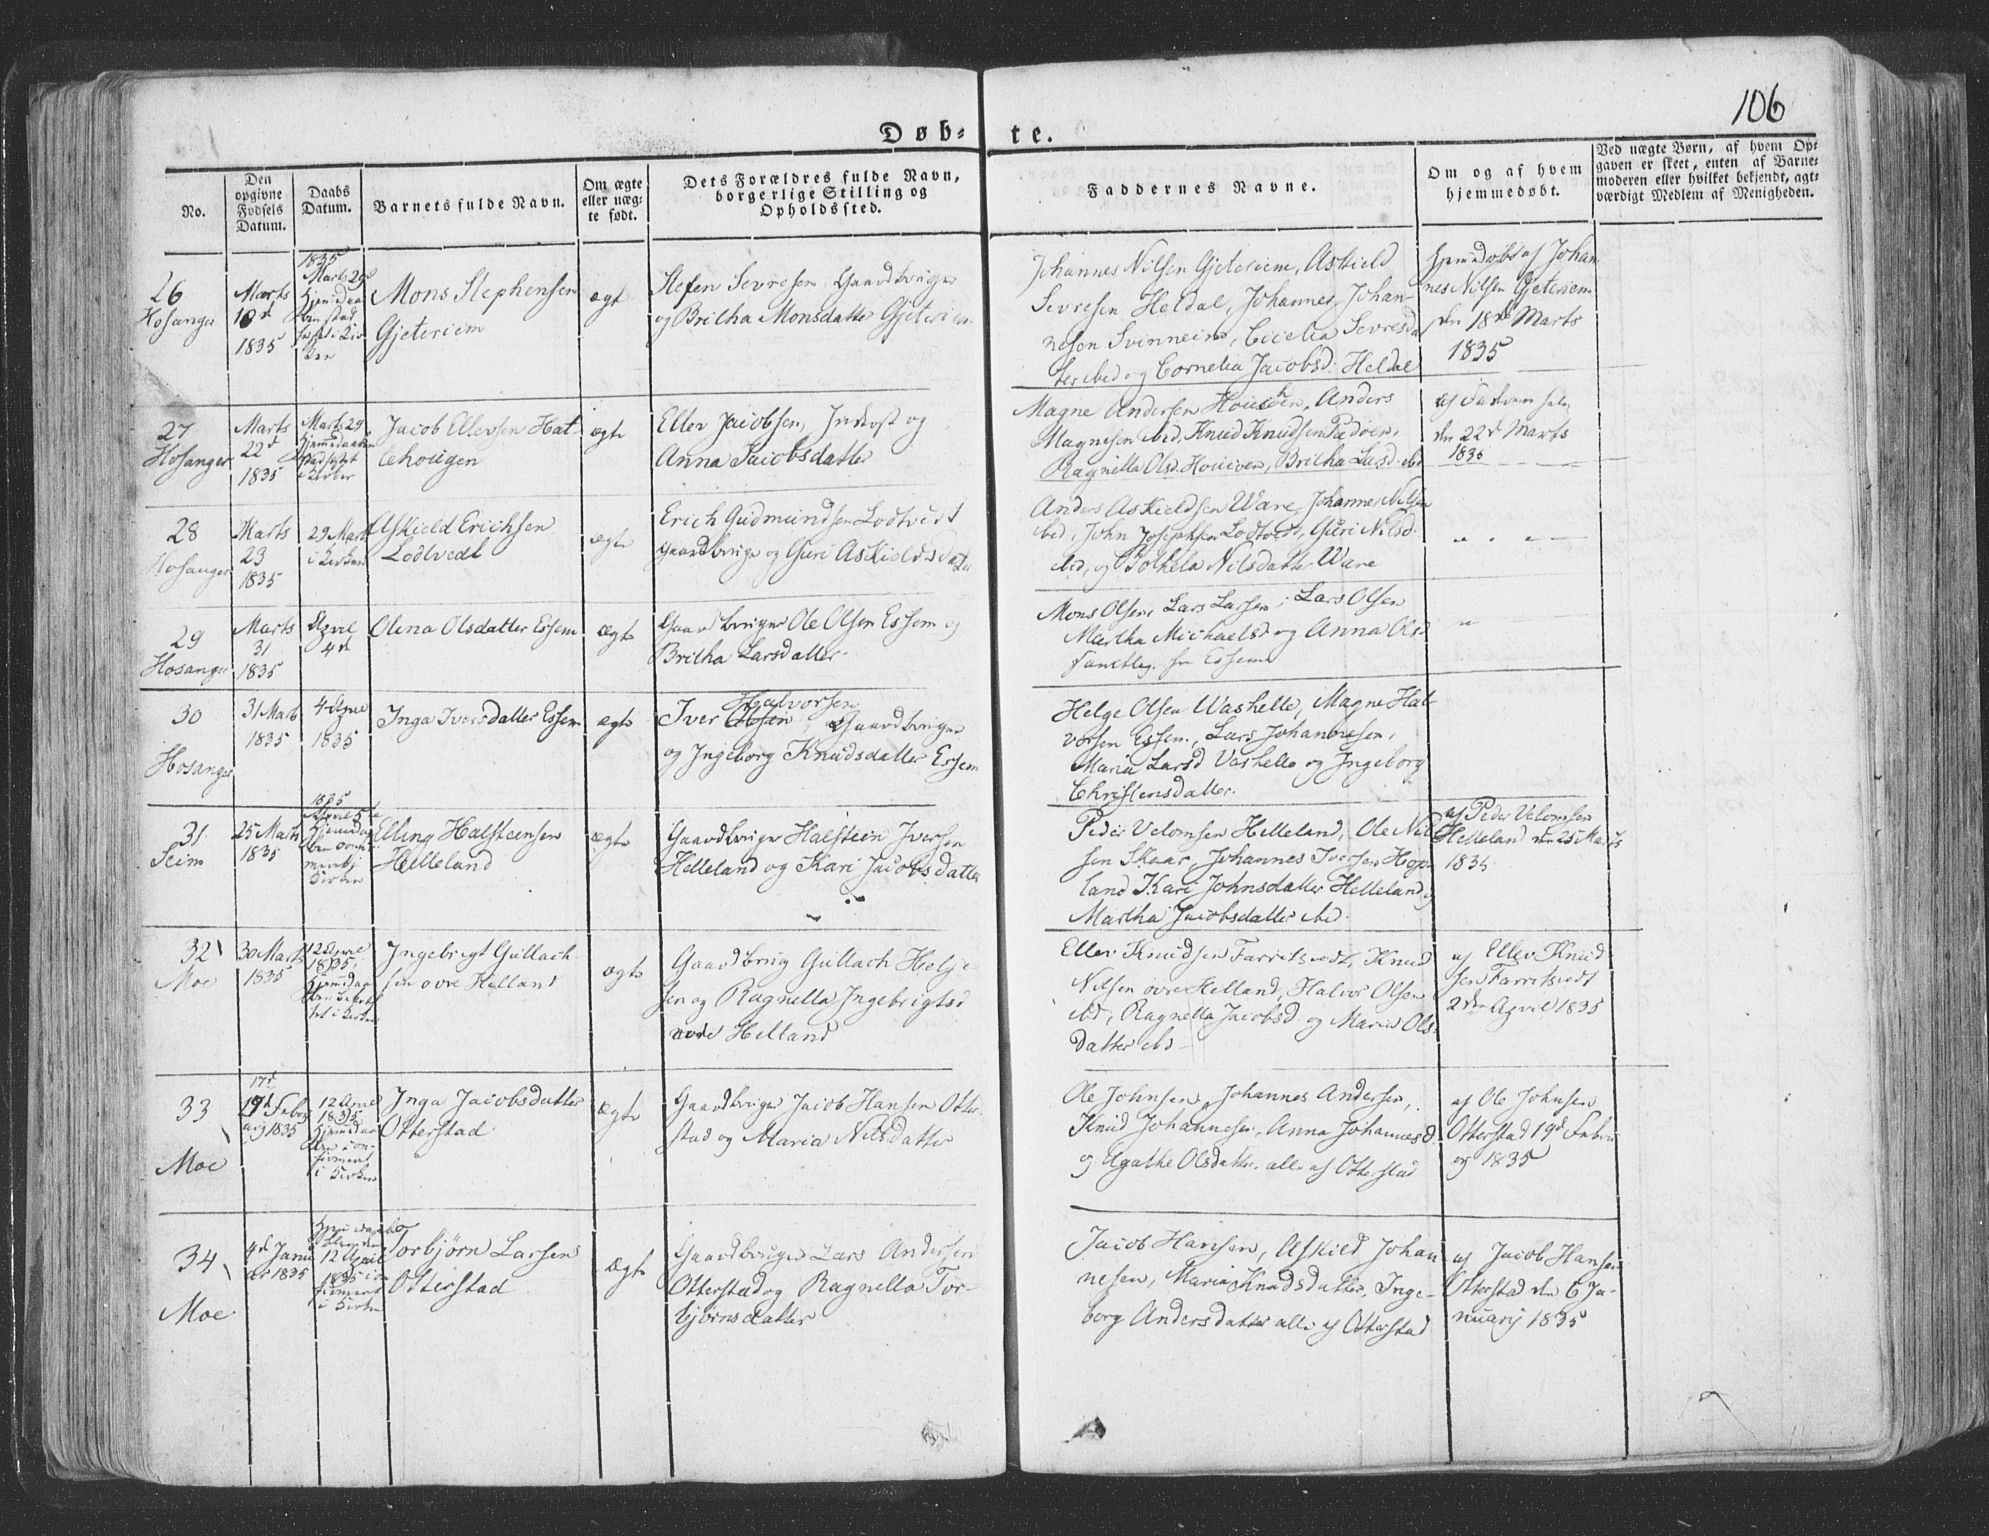 106
Døb-te.
No.
Den opgivne Fødsels Datum.
Daabs Datum.
Barnets fulde Navn.
Om ægte eller uægte født.
Dets Forældres fulde Navn, borgerlige Stilling og Opholdssted.
Faddernes Navne.
Om og af hvem hjemmedøbt.
Ved uægte Børn, af hvem Opgaven er skeet, enten af Barnemoderen eller hvilket bekjendt, agtværdigt Medlem af Menigheden.
26
Hosanger
Marts
10d
1835
1835
Marts 29
Mons Stephensen
Gjeteriem
ægt
Stefen Sevresen, Gaardbruger
og Britha Monsdatter Gjeteriem
Johannes Nilsen Gjeteriem, Askield
Sevresen Heldal, Johannes Johan-
nesen Svinneim, Cicelia Sevresda
ter ibid og Cornelia Jacobsd. Heldal
Hjemdøbt af Johan
nes Nilsen Gjeteriem
den 18de Marts
1835
27
Hosanger
Marts
22d
1835
Marts 29
Jacob Ellevsen Hat-
lehougen
ægte
Ellev Jacobsen, Inderst og
Anna Jacobsdatter
Magne Andersen Houcven, Anders
Magnesen ibid, Knud Knudsen Padøen,
Ragnilla Olsd. Houcven, Britha Larsd. ibd
den 22d Marts
1835
28
Hosanger
Marts
23
1835
29 Mart
i Kirken
Askield Erichsen
Lodtvedt
ægte
Erich Gudmundsen Lodtvedt
Gaardbruger og Guri Askieldsdatter
Anders Askieldsen Ware, Johannes Nilsen
ibid, John Josephsen Lodtvedt, Guri Nilsd.
ibid, og Bothela Nilsdatter Ware
29
Hosanger
Marts
31
1835
April
4d
Olena Olsdatter Essem
ægte
Gaardbruger Ole Olsen Essem og
Britha Larsdatter
Mons Olsen, Lars Larsen, Lars Olsen
Martha Michaelsd og Anna Olsd
samtlig. fra Essem
30
Hosanger
31 Marts
1835
4 April
1835
Inga Iversdatter Essem
ægte
Halvorsen
Iver Olsen, Gaardbruger
og Ingeborg Knudsdatter Essem
Helge Olsen Washelle, Magne Hal-
vorsen Essem, Lars Johannesen,
Maria Larsd Vashelle og Ingeborg
Christensdatter.
31
Seim
25 Marts
1835
1835
April 5te
Kirken
Elling Halsteensen
Helleland
ægte
Gaardbruger Halsteen Iversen
Helleland og Kari Jacobsdatter
Peder Velomsen Helleland, Ole Nil-
sen Skaar, Johannes Iversen Hope
land Kari Johnsdatter Helleland og
Martha Jacobsdatter ibid.
af Peder Velomsen
Helleland den 25 Marts
1835
32
Moe
30 Marts
1835
12 April
1835,
Ingebrigt Gullach-
sen øvre Helland
ægte
Gaardbrug Gullach Helje-
sen og Ragnella Ingebrigtsd
øvre Helland
Ellev Knudsen Farritsvedt, Knud
Nilsen øvre Helland, Halvor Olsen
ibd, Ragnella Jacobsd og Maria Ols-
datter ibd
af Ellev Knud
sen Farritsvedt
2den April 1835
33
Moe
17d
19d Febru
arj 1835
12 April
1835
i Kirken
Inga Jacobsdatter
Otterstad
ægte
Gaardbruger Jacob Hansen Otter-
stad og Maria Nilsdatter
Ole Johnsen, Johannes Andersen,
Knud Johannesen, Anna Johannesd
og Agathe Olsdatter alle af Otterstad
af Ole Johnsen
Otterstad 19d Febru
arj 1835
34
Moe
4d Janu
ar 1835
12 April
1835
i Kirken
Torbjörn Larsen
Otterstad
ægte
Gaardbruger Lars Andersen
Otterstad og Ragnella Tor-
björnsdatter
Jacob Hansen, Askild Johan
nesen, Maria Knudsdatter, Inge-
borg Andersdatter alle af Otterstad
af Jacob Hansen
Otterstad den 6 Ja-
nuarij 1835